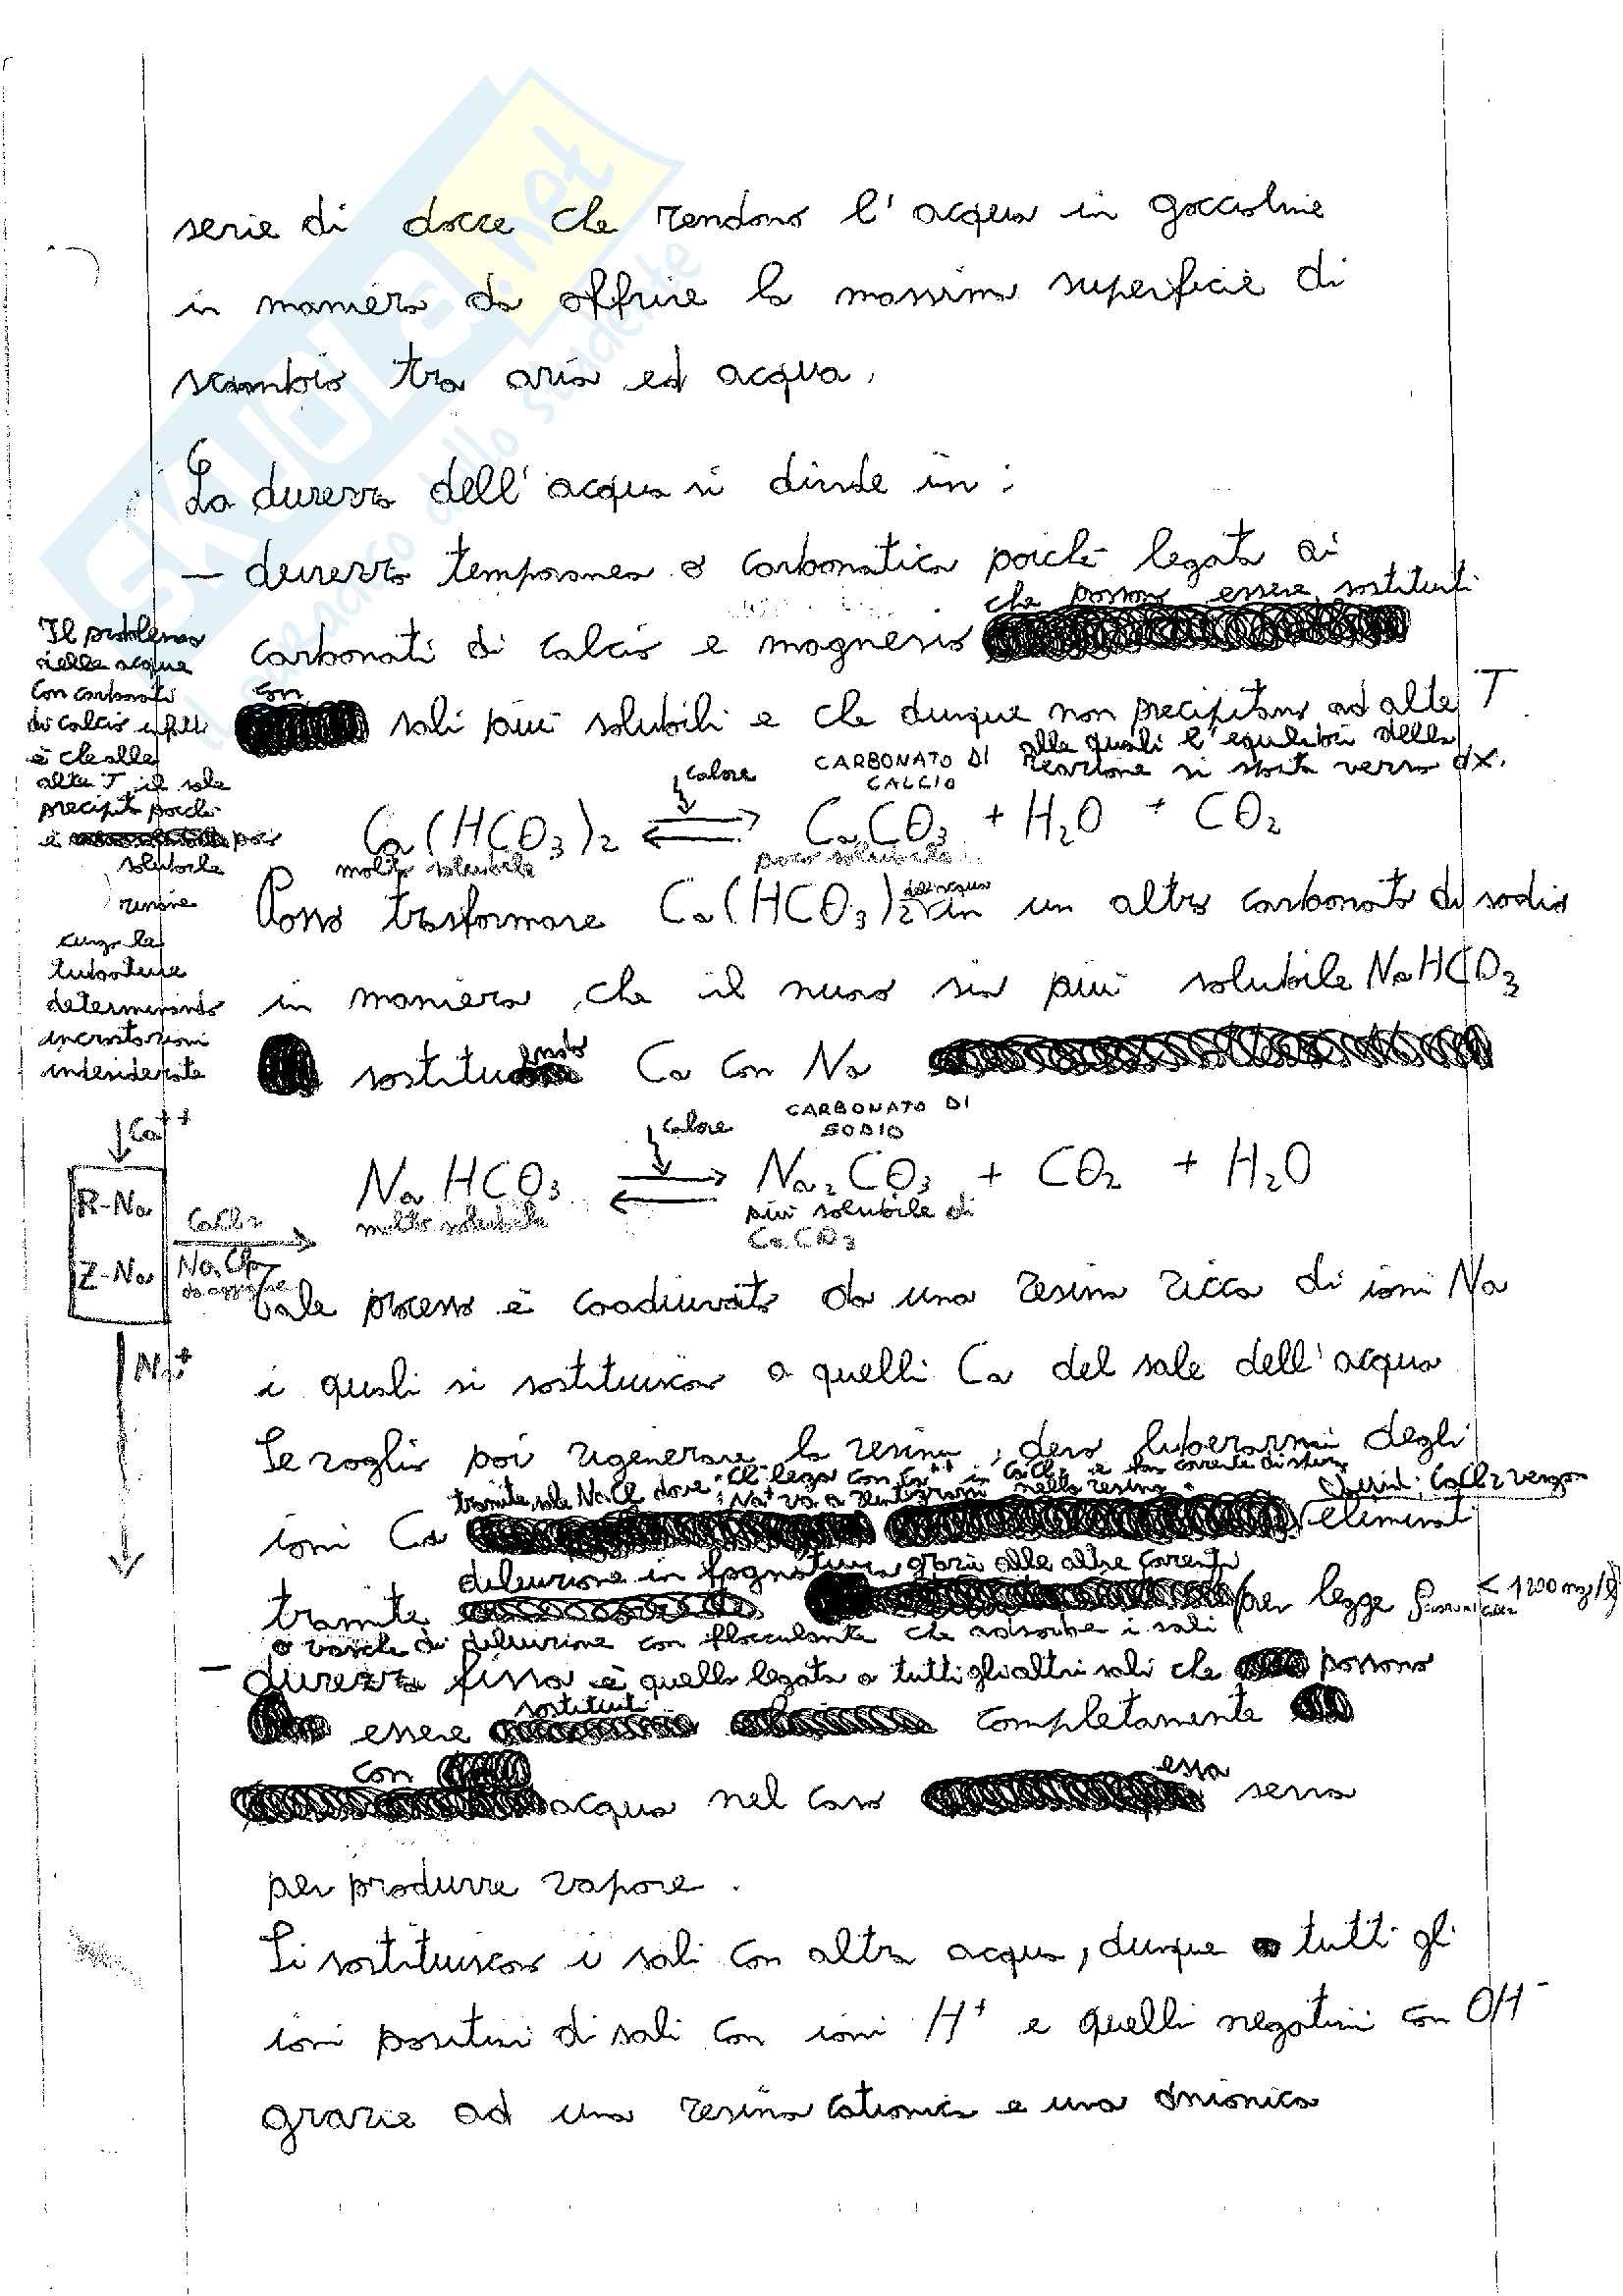 serie di docce che rendono l'acqua in goccioline
in maniera da offrire la massima superficie di
scambio tra aria ed acqua.
La durezza dell'acqua si divide in:
– durezza temporanea o carbonatica poichè legata ai
che possono essere sostituiti
carbonati di calcio e magnesio
con
sali più solubili e che dunque non precipitano ad alte T
alle quali l'equilibrio della
reazione si sposta verso dx.
Il problema
delle acque
con carbonati
di calcio
è che alle
alte T, il sale
precipita poichè
è poco
solubile
cungo la
tubature
determinando
incrostazioni
indesiderate
calore
CARBONATO DI
CALCIO
Ca(HCO3)2 ⇌ CaCO3 + H2O + CO2
molto solubile poco solubile
Posso trasformare Ca(HCO3)2 dell'acqua in un altro carbonato di sodio
in maniera che il nuovo sia più solubile NaHCO3
sostituendo Ca con Na
calore
CARBONATO DI
SODIO
NaHCO3 ⇌ Na2CO3 + CO2 + H2O
molto solubile più solubile di
CaCO3
Ca++
R-Na
Z-Na
CaCl2
NaCl
Na+
Tale processo è coadiuvato da una resina ricca di ioni Na
i quali si sostituiscono a quelli Ca del sale dell'acqua
Se voglio poi rigenerare la resina, devo liberarmi degli
tramite sale NaCl dove: Cl lega con Ca++ in CaCl2 e
Na+ va a reintegrarsi nella resina.
ioni Ca
CaCl2 vengon
eliminati
diluizione in fognatura grazie alle altre correnti
tramite
per legge < 1200 mg/l
o vasche di diluizione con flocculante che adsorbe i sali
– durezza fissa è quella legata a tutti gli altri sali che possono
essere sostituiti completamente
con acqua nel caso essa serva
per produrre vapore.
Si sostituiscono i sali con altra acqua, dunque tutti gli
ioni positivi di sali con ioni H+ e quelli negativi con OH-
grazie ad una resina cationica e una anionica
SKUOLA.net